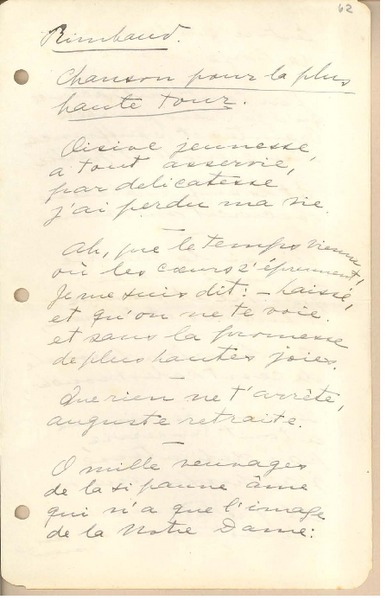 62
Rimbaud.
Chanson pour la plus
haute tour.
Oisive jeunesse,
a tout asservie,
par delicatesse
j'ai perdu ma vie.
Ah, que le temps vienne
où les cœurs s'éprennent,
Je me suis dit: - Laisse,
et qu'on ne te voie.
et sans la promesse
de plus hautes joies.
Que rien ne t'arrête,
auguste retraite.
O mille veuvages
de la si pauvre âme
qui n'a que l'image
de la Notre Dame: